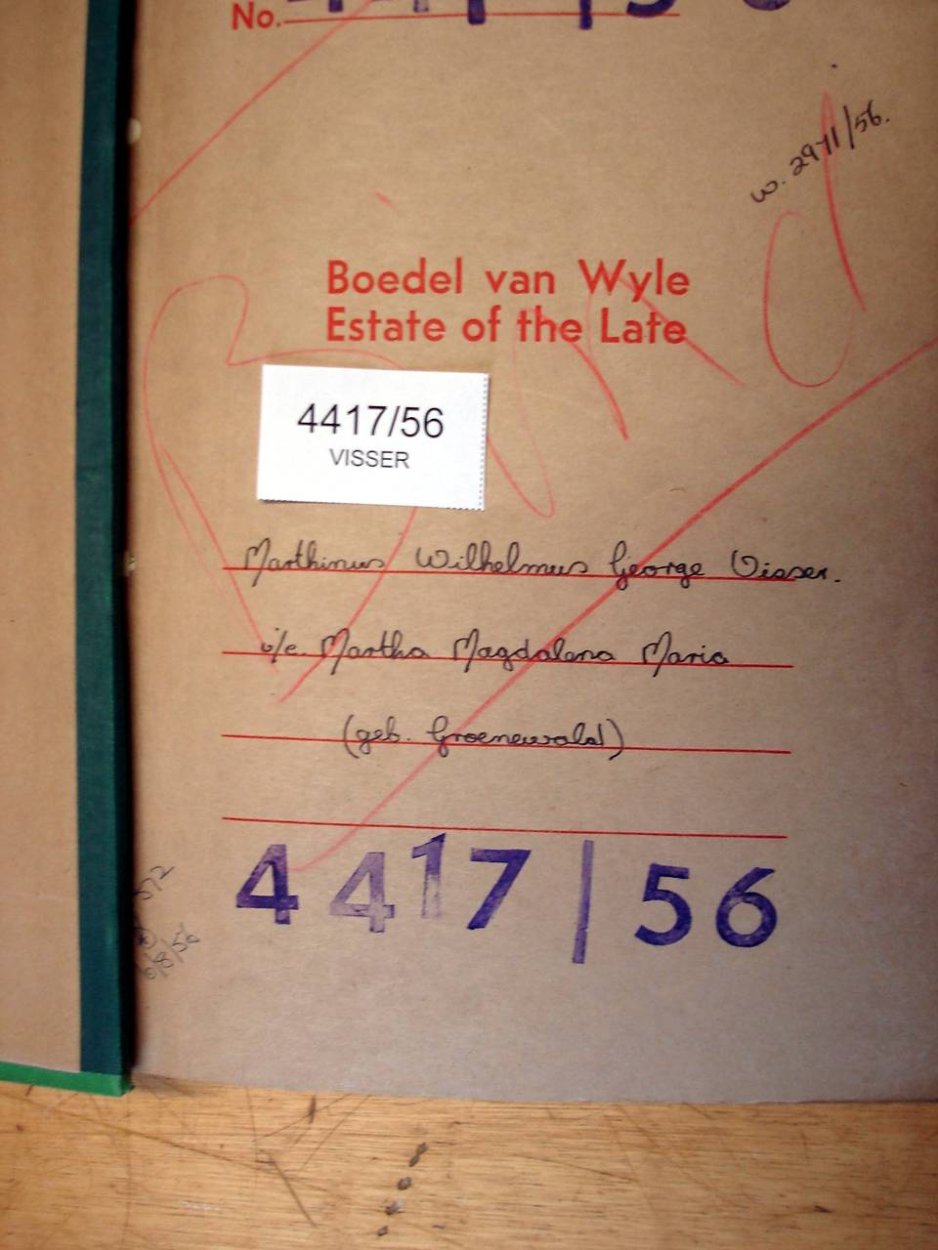 No. 4417/56
w. 2971/56.
Boedel van Wyle
Estate of the Late
4417/56
VISSER
Marthinus Wilhelmus George Visser.
v/e. Martha Magdalena Maria
(geb. Groenewald)
4417/56
6/8/56